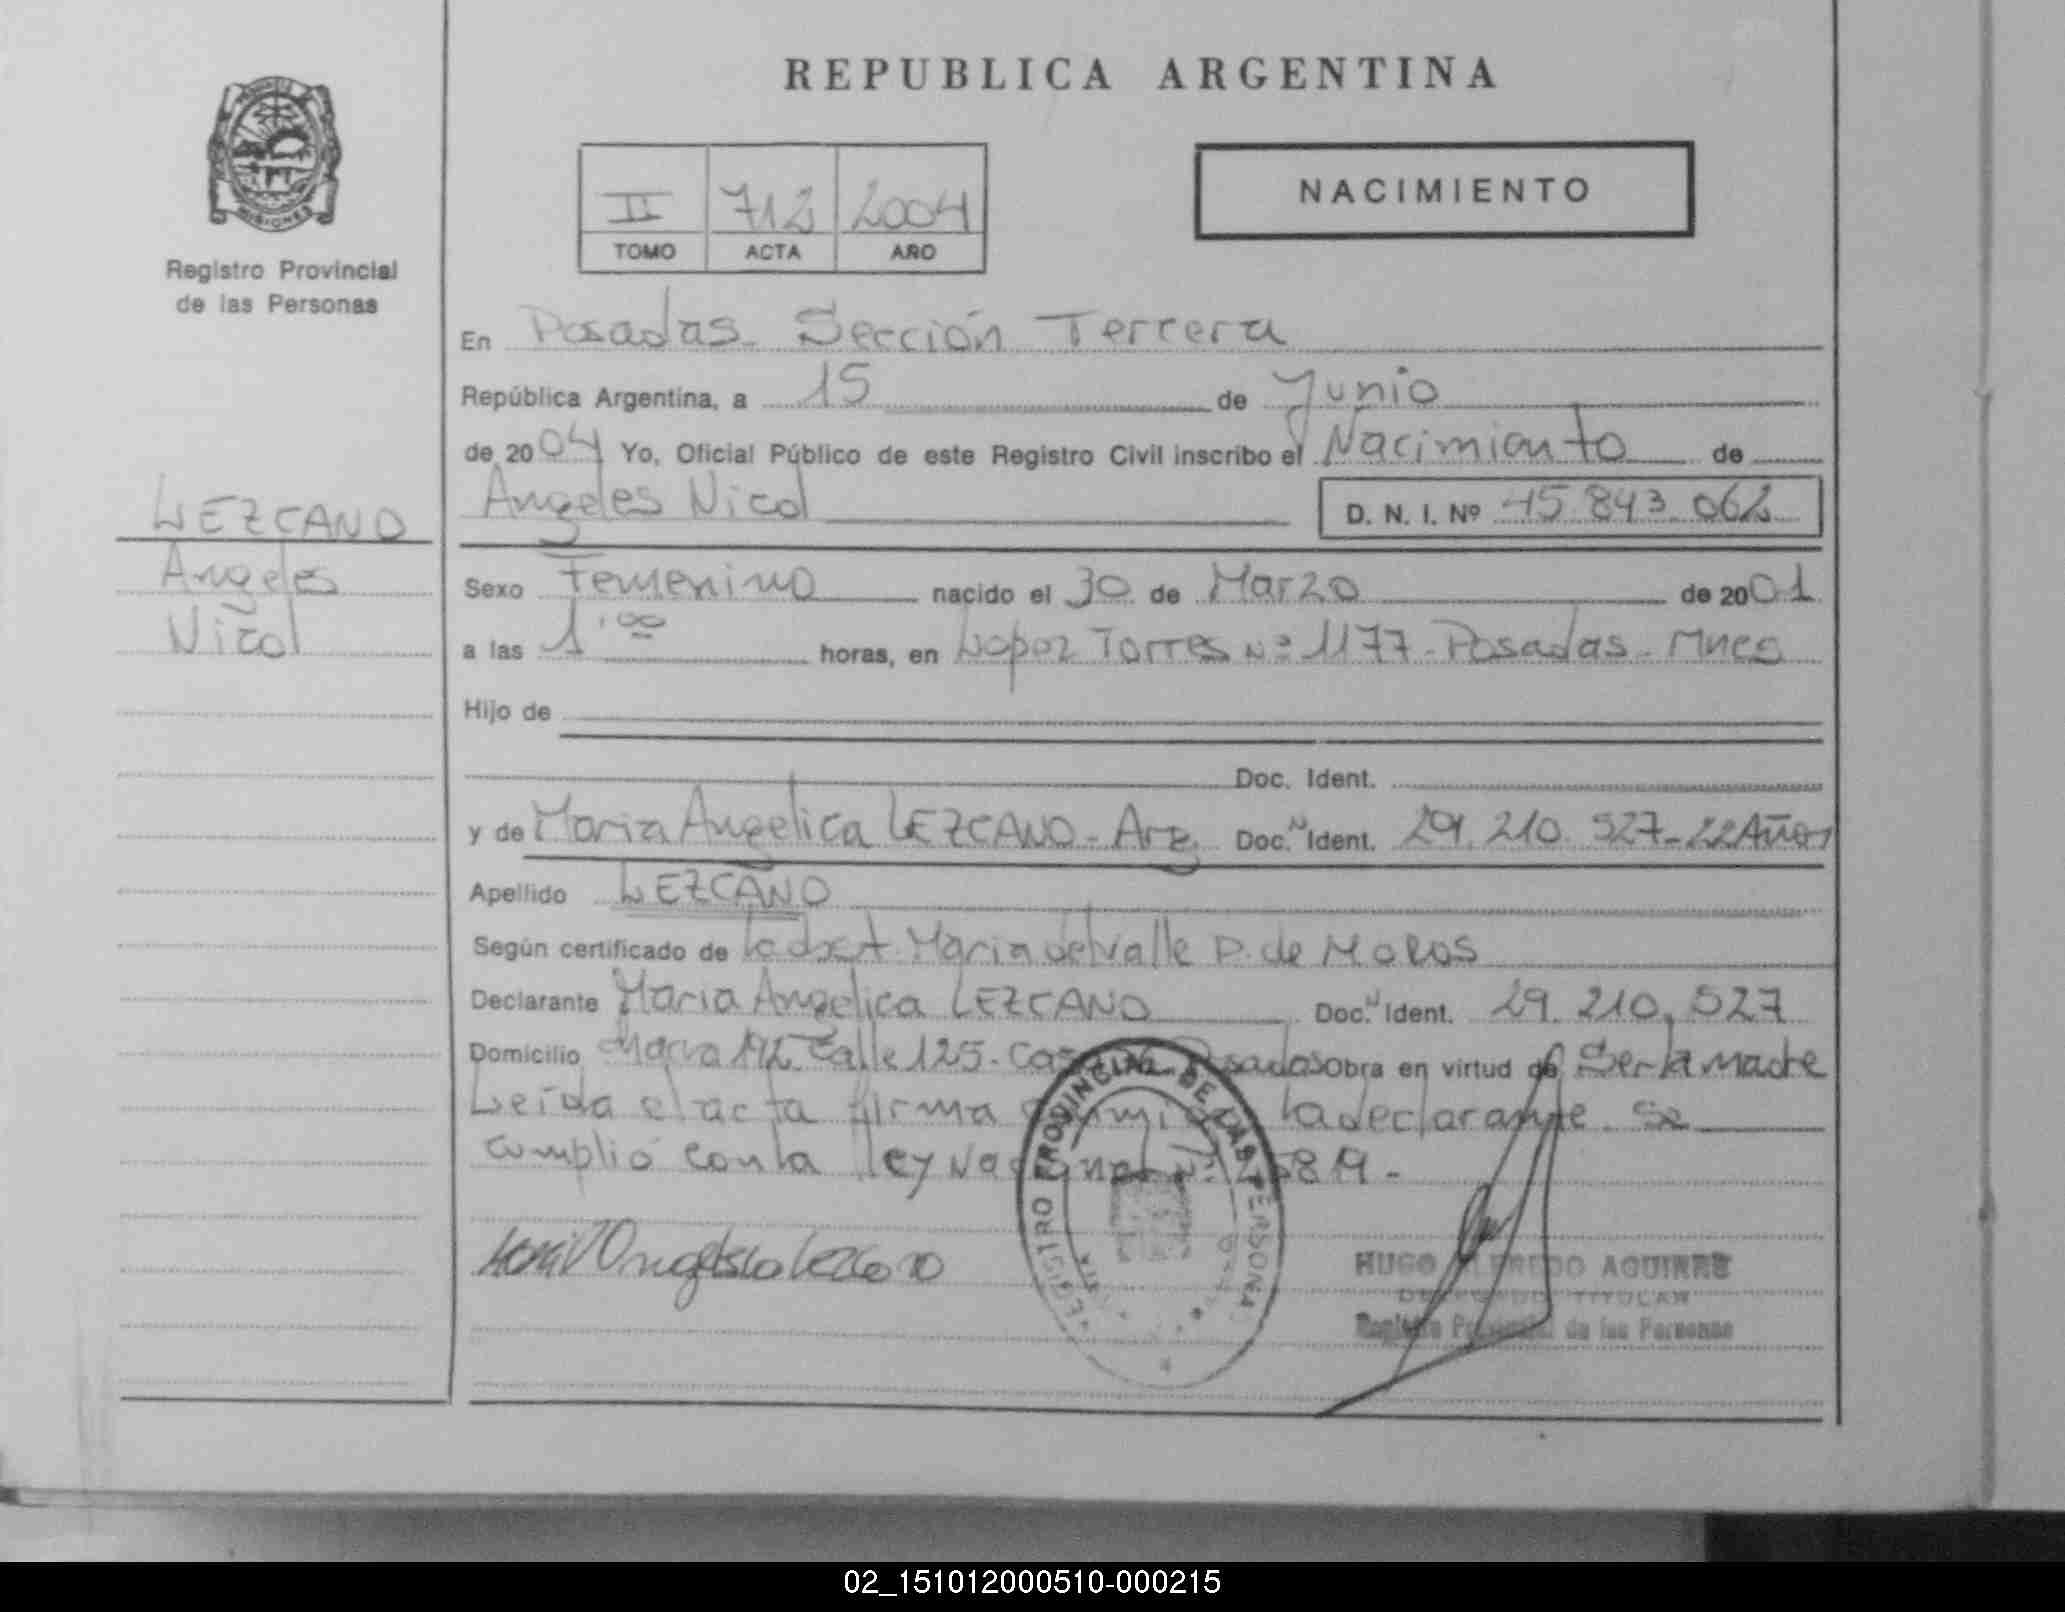 REPUBLICA ARGENTINA
MISIONES
Registro Provincial
de las Personas
II 712 2004
TOMO ACTA AÑO
NACIMIENTO
En Posadas - Sección Tercera
República Argentina, a 15 de Junio
de 2004 Yo, Oficial Público de este Registro Civil inscribo el Nacimiento de
Angeles Nicol D. N. I. Nº 45.843.062
LEZCANO
Angeles
Nicol
Sexo Femenino nacido el 30 de Marzo de 2001
a las 1:00 horas, en Lopez Torres Nº 1177 - Posadas - Mnes
Hijo de
Doc. Ident.
y de Maria Angelica LEZCANO - Arg Doc. N Ident. 29.210.527 - 22 Años
Apellido LEZCANO
Según certificado de la obst. Maria del Valle P. de
Declarante Maria Angelica LEZCANO Doc. N Ident. 29.210.527
Domicilio Calle 125 - Posadas Obra en virtud de Ser la madre
Leida el acta firma la declarante. Se
cumplió con la ley Nacional
Maria Angelica Lezcano
REGISTRO PROVINCIAL DE LAS PERSONAS
HUGO ALFREDO AGUIRRE
DELEGADO TITULAR
Registro Provincial de las Personas
02_151012000510-000215